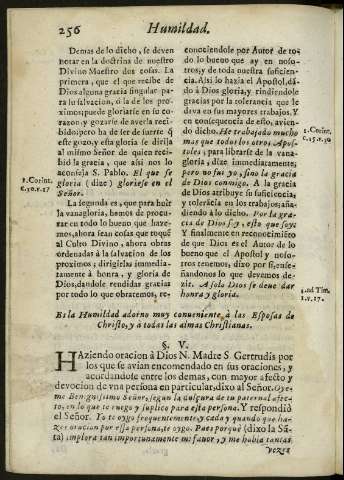 256
Humildad.
Demas de lo dicho, se deven
notar en la doctrina de nuestro
Divino Maestro dos cosas. La
primera, que el que recibe de
Dios alguna gracia singular pa-
ra su salvacion, ó la de los pro-
ximos; puede gloriarse en su co-
razon, y gozarse de averla reci-
bido; pero ha de ser de suerte q̃
este gozo, y esta gloria se dirija
al mismo Señor de quien reci-
bió la gracia, que asi nos lo
aconseja S. Pablo. El que se
gloria (dize) gloriese en el
Señor.
1. Corint.
c. 10. v. 17
La segunda es, que para huir
la vanagloria, hemos de procu-
rar en todo lo bueno que haze-
mos, ahora sean cosas que toquẽ
al Culto Divino, ahora obras
ordenadas à la salvacion de los
proximos; dirigirlas immedia-
tamente à honra, y gloria de
Dios, dandole rendidas gracias
por todo lo que obraremos, re-
conociendole por Autor de to-
do lo bueno que ay en noso-
tros, y de toda nuestra suficien-
cia. Asi lo hazia el Apostol, dã-
do à Dios gloria, y rindiendole
gracias por la tolerancia que le
dava en sus mayores trabajos. Y
en consequencia de esto, avien-
do dicho. He trabajado mucho
mas que todos los otros Apos-
toles; para librarse de la vana-
gloria, dize immediatamente;
pero no fui yo, sino la gracia
de Dios conmigo. A la gracia
de Dios atribuye su suficiencia,
y tolerancia en los trabajos; aña-
diendo à lo dicho. Por la gra-
cia de Dios soy, esto que soy.
Y finalmente en reconocimiẽto
de que Dios es el Autor de lo
bueno que el Apostol y noso-
tros tenemos, dixo por si, ense-
ñandonos lo que devemos de-
zir. A solo Dios se deve dar
honra y gloria.
1. Corint.
c. 15. v. 10
1. ad Tim.
1. v. 17.
Es la Humildad adorno muy conveniente, à las Esposas de
Christo, y à todas las almas Christianas.
§. V.
HAziendo oracion à Dios N. Madre S. Gertrudis por
los que se avian encomendado en sus oraciones, y
acordandose entre los demas, con mayor afecto y
devocion de vna persona en particular, dixo al Señor. Oye-
me Benignissimo Señor, segun la dulçura de tu paternal afec-
to, en lo que te ruego y suplico para esta persona. Y respondiò
el Señor. Yo te oygo frequentemente, y cada y quando que ha-
zes oracion por essa persona, te oygo. Pues porquè (dixo la Sã-
ta) implora tan importunamente mi favor, y me habla tantas
vezes